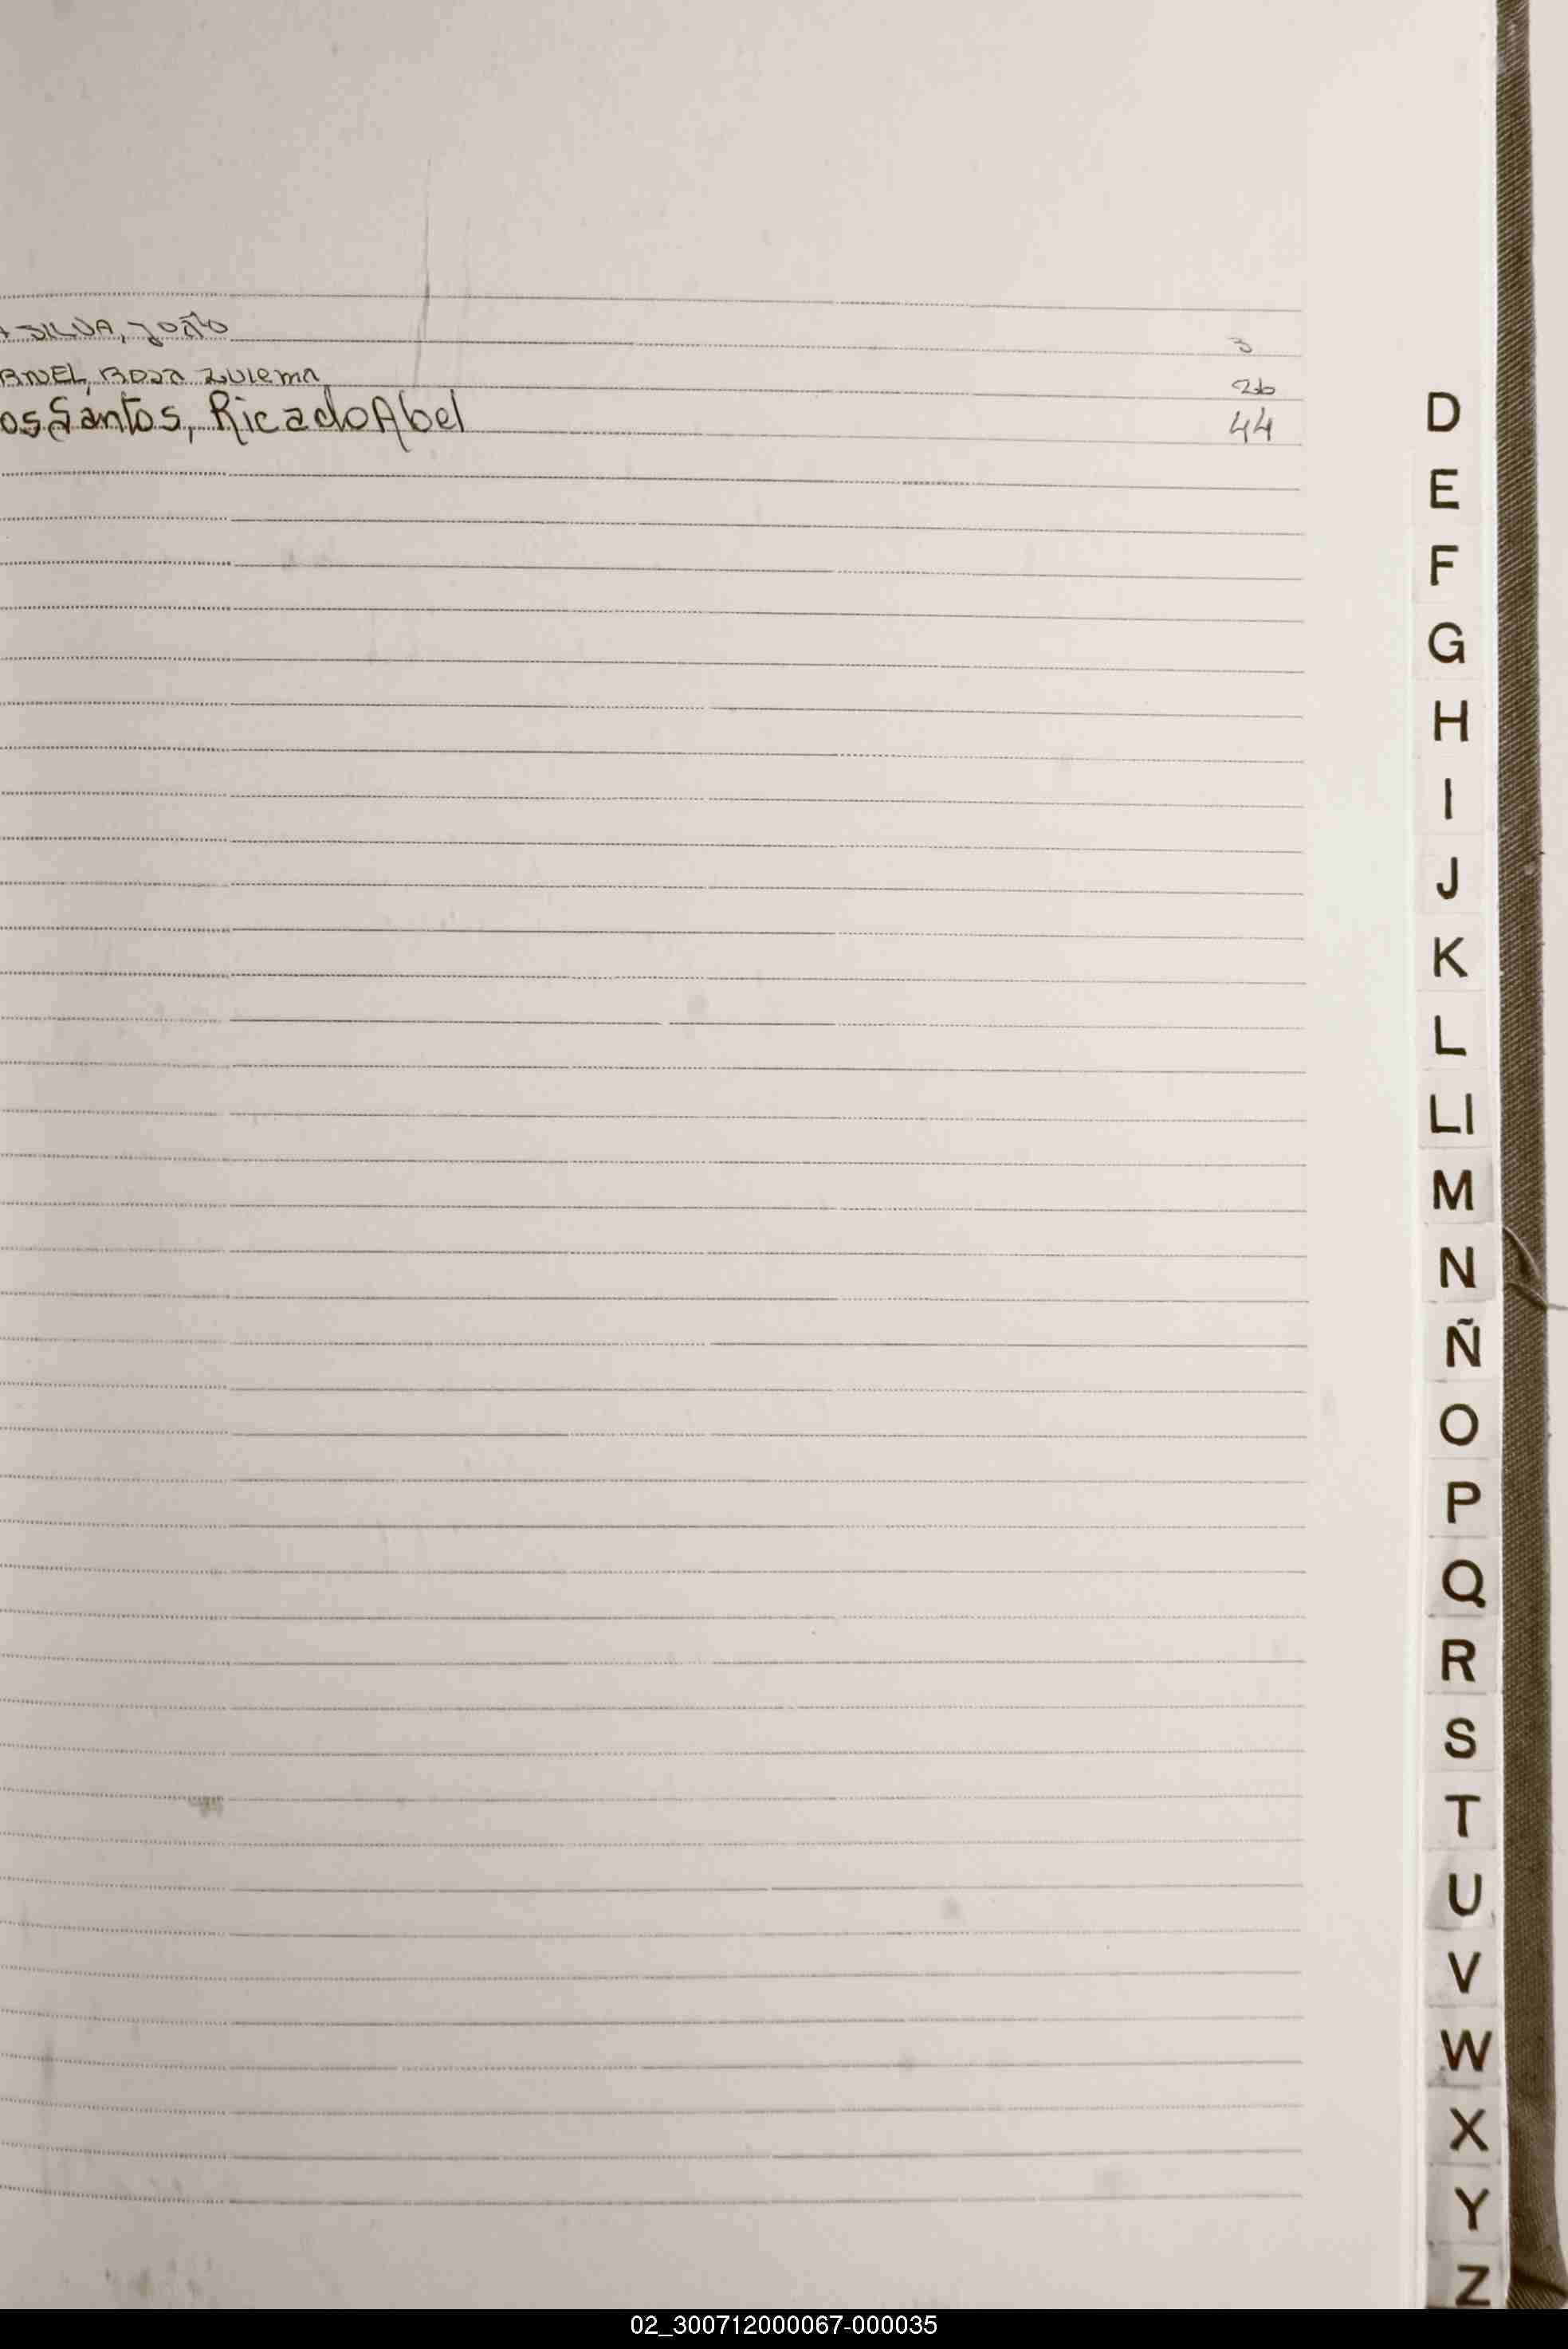 A SILVA, JOÃO 3
ANEL, ROSA Zulema 26
os Santos, Ricado Abel 44
D
E
F
G
H
I
J
K
L
Ll
M
N
Ñ
O
P
Q
R
S
T
U
V
W
X
Y
Z
02_300712000067-000035